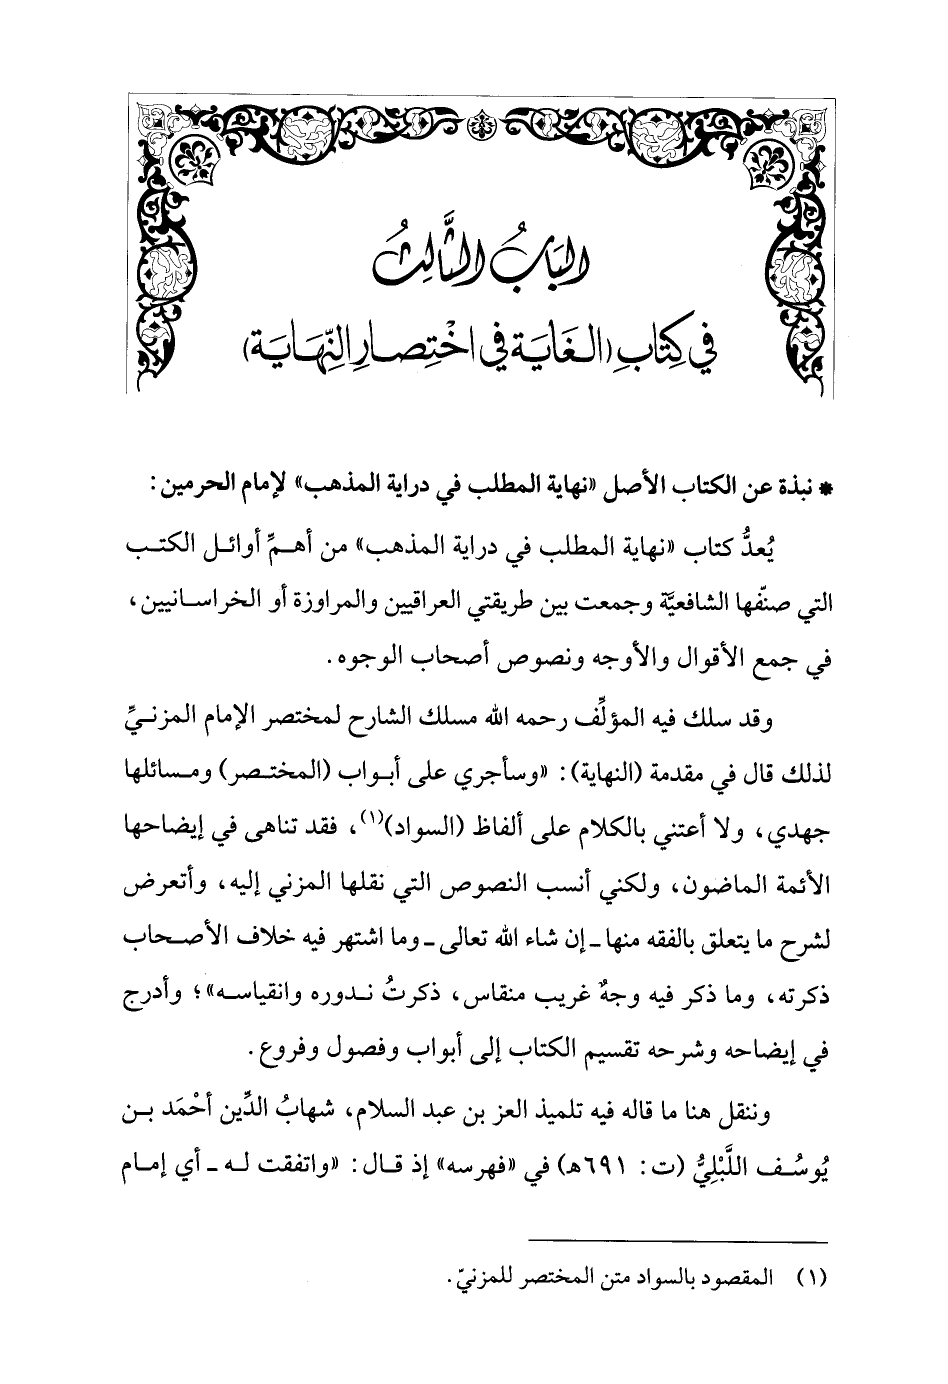 الباب الثالث
في كتاب (الغاية في اختصار النهاية)
* نبذة عن الكتاب الأصل «نهاية المطلب في دراية المذهب» لإمام الحرمين:
يُعدُّ كتاب «نهاية المطلب في دراية المذهب» من أهمِّ أوائل الكتب
التي صنّفها الشافعيَّة وجمعت بين طريقتي العراقيين والمراوزة أو الخراسانيين،
في جمع الأقوال والأوجه ونصوص أصحاب الوجوه.
وقد سلك فيه المؤلِّف رحمه الله مسلك الشارح لمختصر الإمام المزنيِّ
لذلك قال في مقدمة (النهاية): «وسأجري على أبواب (المختصر) ومسائلها
جهدي، ولا أعتني بالكلام على ألفاظ (السواد)(١)، فقد تناهى في إيضاحها
الأئمة الماضون، ولكني أنسب النصوص التي نقلها المزني إليه، وأتعرض
لشرح ما يتعلق بالفقه منها ـ إن شاء الله تعالى ـ وما اشتهر فيه خلاف الأصحاب
ذكرته، وما ذكر فيه وجهٌ غريب منقاس، ذكرتُ ندوره وانقياسه»؛ وأدرج
في إيضاحه وشرحه تقسيم الكتاب إلى أبواب وفصول وفروع.
وننقل هنا ما قاله فيه تلميذ العز بن عبد السلام، شهابُ الدِّين أحْمَد بن
يُوسُف اللَّبْلِيُّ (ت: ٦٩١هـ) في «فهرسه» إذ قال: «واتفقت له ـ أي إمام
(١) المقصود بالسواد متن المختصر للمزنيّ.